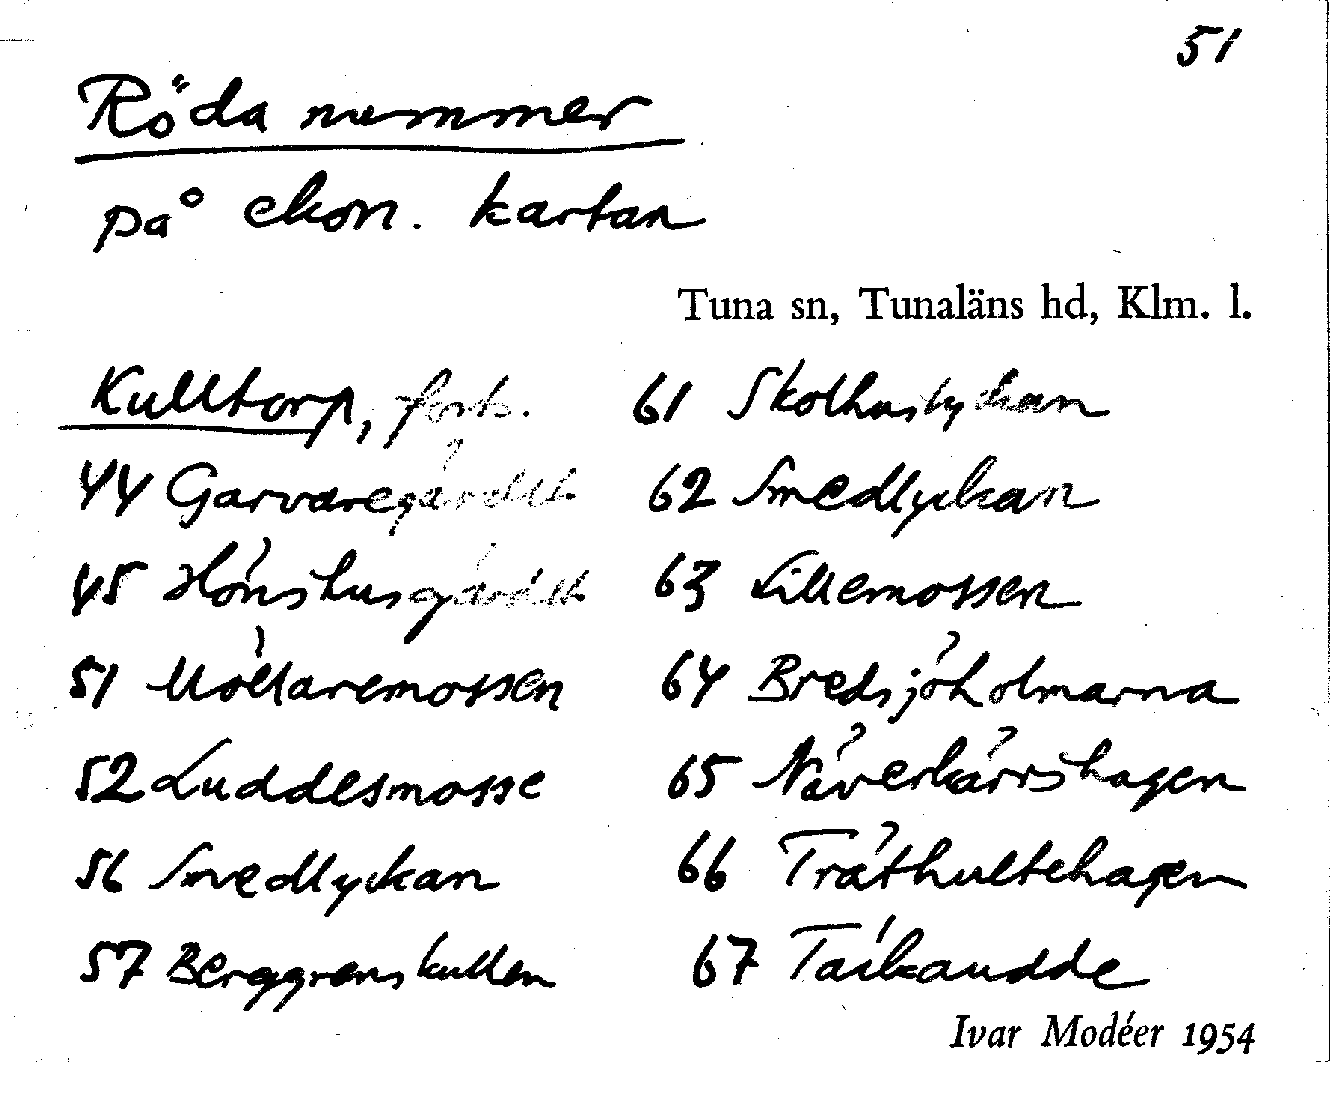 51
Röda nummer
på ekon. kartan
Tuna sn, Tunaläns hd, Klm. l.
Kulltorp, forts.
44 Garvaregårdet
45 Hönshusgårdet
51 Möllaremossen
52 Luddesmosse
56 Smedlyckan
57 Berggrenskullen
61 Skolhuslyckan
62 Smedlyckan
63 Lillemossen
64 Bredsjöholmarna
65 Näverkärrshagen
66 Träthultehagen
67 Taikaudde
Ivar Modéer 1954